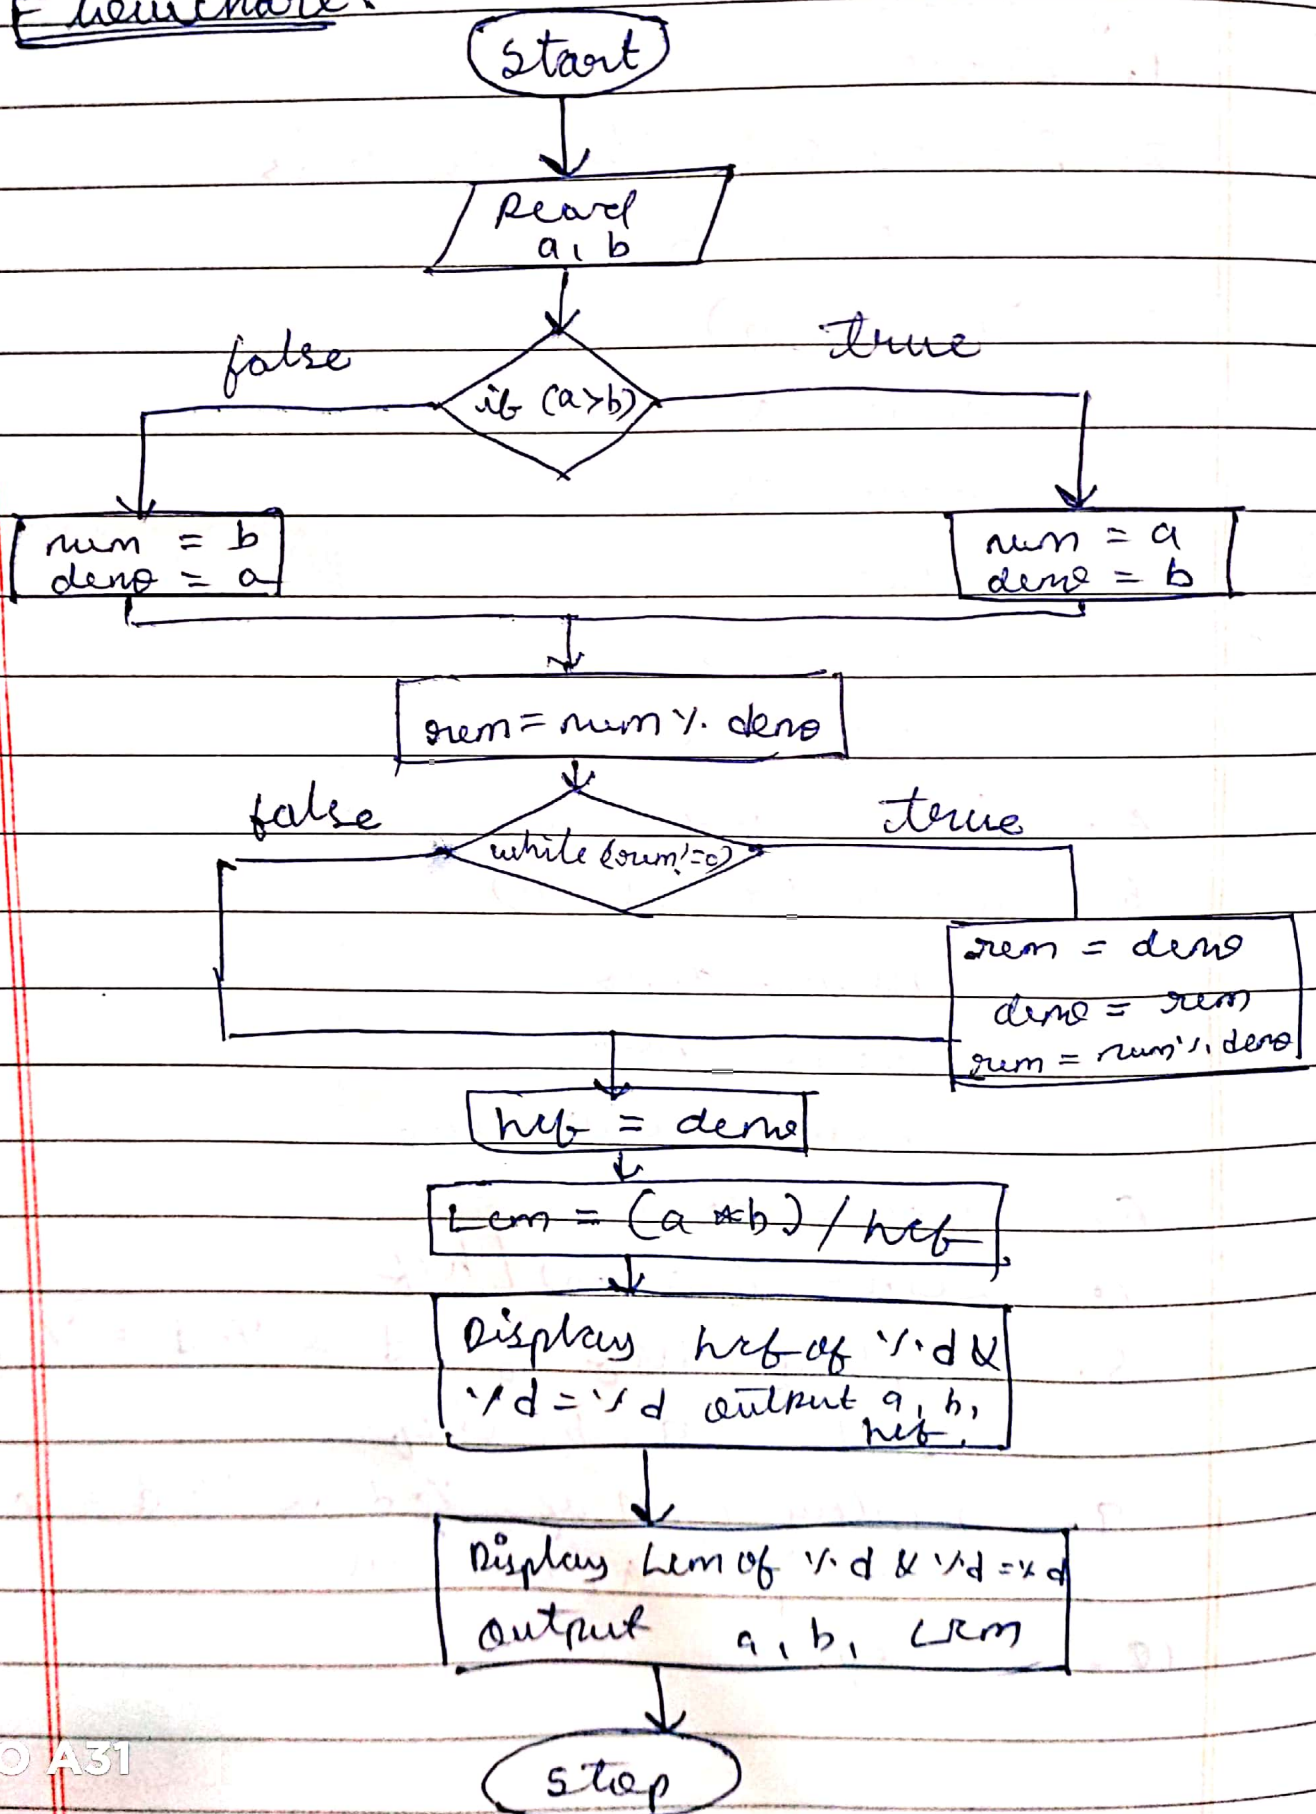 Flowchart.
Start
Read
a, b
false
true
if (a>b)
num = b
deno = a
num = a
deno = b
rem = num % deno
false
true
while (rem!=0)
rem = deno
deno = rem
rem = num % deno
hcf = deno
Lcm = (a *b) / hcf
Display hcf of %d &
%d = %d output a, b,
hcf,
Display Lcm of %d & %d = %d
output a, b, Lcm
Stop
A31